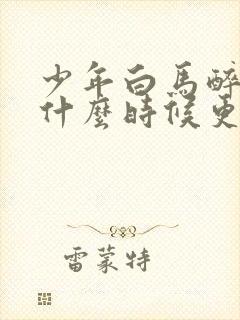 少年白馬醉
什麼時候更
雷蒙特